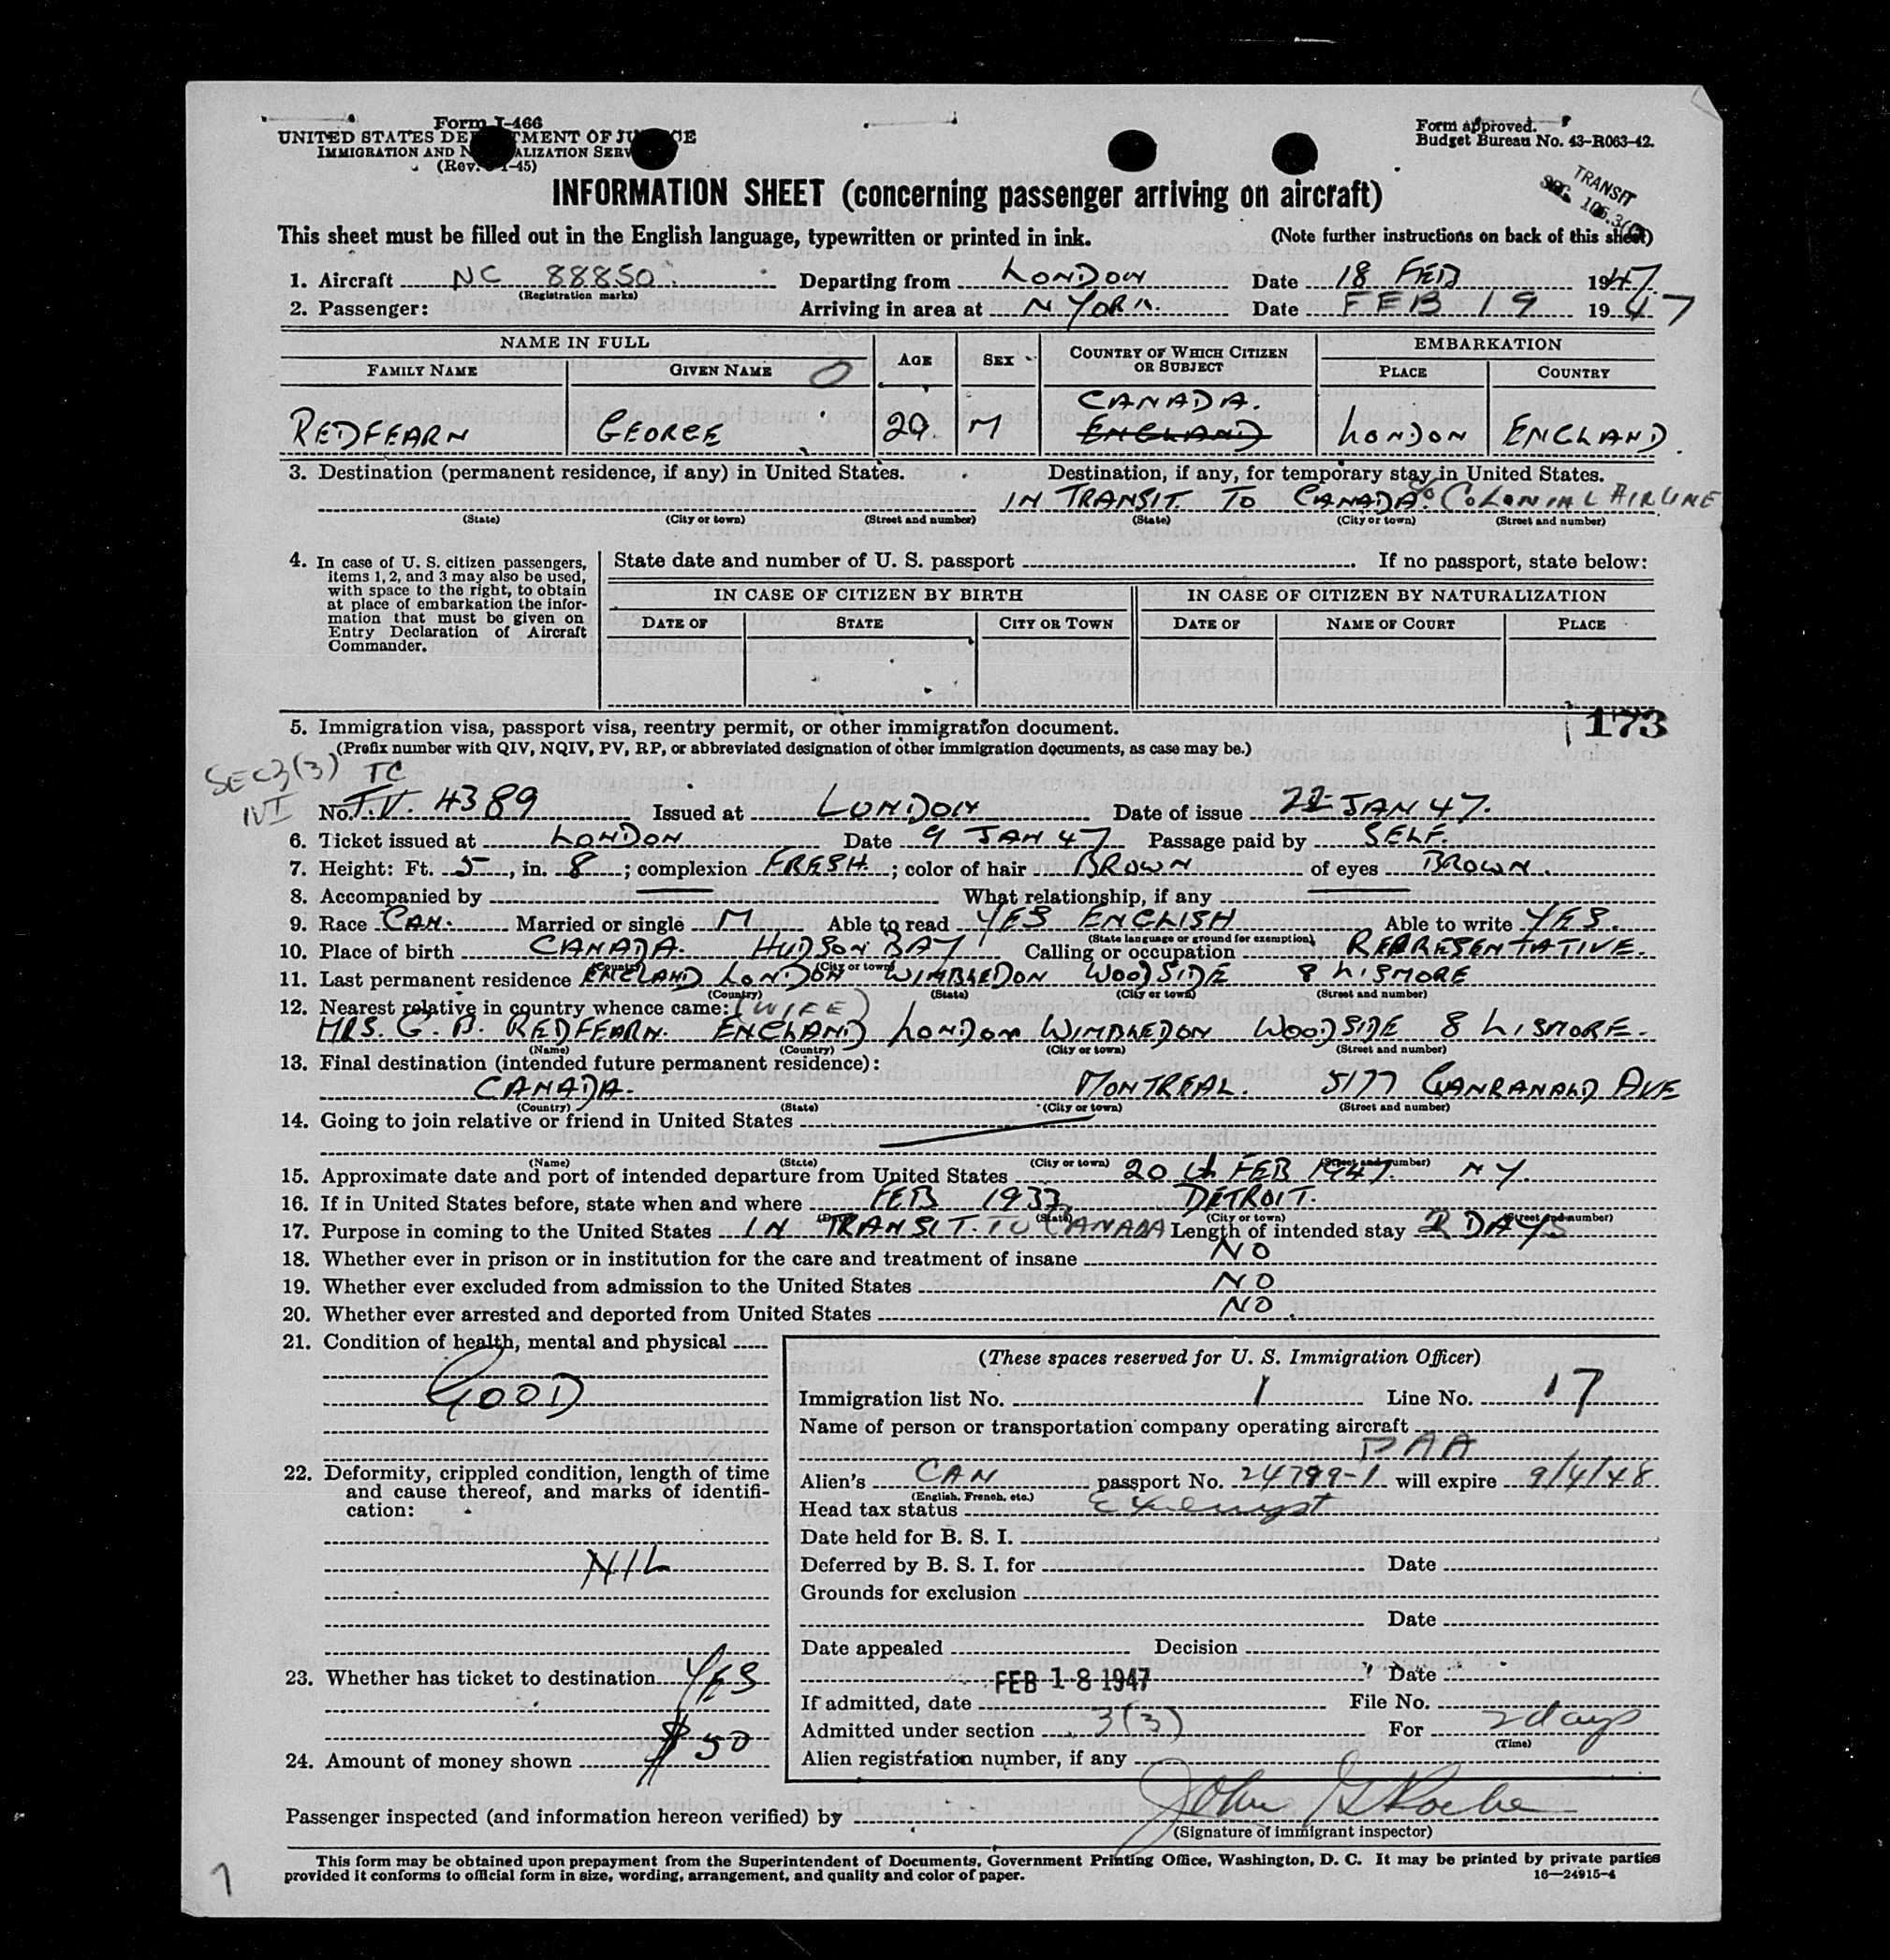 Form I-466
UNITED STATES DE TMENT OF JU CE
IMMIGRATION AND N ALIZATION SERV
(Rev. 1-45)
Form approved.
Budget Bureau No. 43-R063-42.
TRANSIT
SEC. 106.3
INFORMATION SHEET (concerning passenger arriving on aircraft)
This sheet must be filled out in the English language, typewritten or printed in ink. (Note further instructions on back of this sheet)
1. Aircraft NC 88850. Departing from LONDON Date 18 FEB 1947
(Registration marks)
2. Passenger: Arriving in area at N YORK. Date FEB 19 1947
NAME IN FULL AGE SEX COUNTRY OF WHICH CITIZEN OR SUBJECT EMBARKATION
FAMILY NAME GIVEN NAME PLACE COUNTRY
CANADA.
REDFEARN GEORGE 29. M ENGLAND LONDON ENGLAND.
3. Destination (permanent residence, if any) in United States. Destination, if any, for temporary stay in United States.
IN TRANSIT. TO CANADA. c/o COLONIAL AIRLINE
(State) (City or town) (Street and number) (State) (City or town) (Street and number)
4. In case of U. S. citizen passengers, items 1, 2, and 3 may also be used, with space to the right, to obtain at place of embarkation the information that must be given on Entry Declaration of Aircraft Commander.
State date and number of U. S. passport . If no passport, state below:
IN CASE OF CITIZEN BY BIRTH IN CASE OF CITIZEN BY NATURALIZATION
DATE OF STATE CITY OR TOWN DATE OF NAME OF COURT PLACE
173
5. Immigration visa, passport visa, reentry permit, or other immigration document.
(Prefix number with QIV, NQIV, PV, RP, or abbreviated designation of other immigration documents, as case may be.)
SEC 3(3) TC
No. T.V. 4389 Issued at LONDON Date of issue 22 JAN 47.
6. Ticket issued at LONDON Date 9 JAN 47 Passage paid by SELF.
7. Height: Ft. 5, in. 8; complexion FRESH.; color of hair BROWN of eyes BROWN.
8. Accompanied by What relationship, if any
9. Race CAN. Married or single M Able to read YES ENGLISH Able to write YES.
(State language or ground for exemption)
10. Place of birth CANADA. HUDSON BAY Calling or occupation REPRESENTATIVE.
(Country) (City or town)
11. Last permanent residence ENGLAND LONDON WIMBLEDON WOODSIDE 8 LISMORE
(Country) (State) (City or town) (Street and number)
12. Nearest relative in country whence came: (WIFE)
MRS. G. B. REDFEARN. ENGLAND LONDON WIMBLEDON WOODSIDE 8 LISMORE.
(Name) (Country) (City or town) (Street and number)
13. Final destination (intended future permanent residence):
CANADA. MONTREAL. 5177 GANRANALD AVE
(Country) (State) (City or town) (Street and number)
14. Going to join relative or friend in United States
(Name) (State) (City or town) (Street and number)
15. Approximate date and port of intended departure from United States 20th FEB 1947. NY.
16. If in United States before, state when and where FEB 1933 DETROIT.
(Date) (State) (City or town) (Street and number)
17. Purpose in coming to the United States IN TRANSIT. TO CANADA Length of intended stay 2 DAYS
18. Whether ever in prison or in institution for the care and treatment of insane NO
19. Whether ever excluded from admission to the United States NO
20. Whether ever arrested and deported from United States NO.
21. Condition of health, mental and physical
GOOD
22. Deformity, crippled condition, length of time and cause thereof, and marks of identification:
NIL
23. Whether has ticket to destination YES
24. Amount of money shown $50
(These spaces reserved for U. S. Immigration Officer)
Immigration list No. 1 Line No. 17
Name of person or transportation company operating aircraft
PAA
Alien's CAN passport No. 24799-1 will expire 9/4/48
(English, French, etc.)
Head tax status Exempt
Date held for B. S. I.
Deferred by B. S. I. for Date
Grounds for exclusion
Date
Date appealed Decision
Date
FEB 18 1947
If admitted, date File No.
Admitted under section 3(3) For 2 days
(Time)
Alien registration number, if any
Passenger inspected (and information hereon verified) by John G Roche
(Signature of immigrant inspector)
This form may be obtained upon prepayment from the Superintendent of Documents, Government Printing Office, Washington, D. C. It may be printed by private parties
provided it conforms to official form in size, wording, arrangement, and quality and color of paper. 16—24915-4